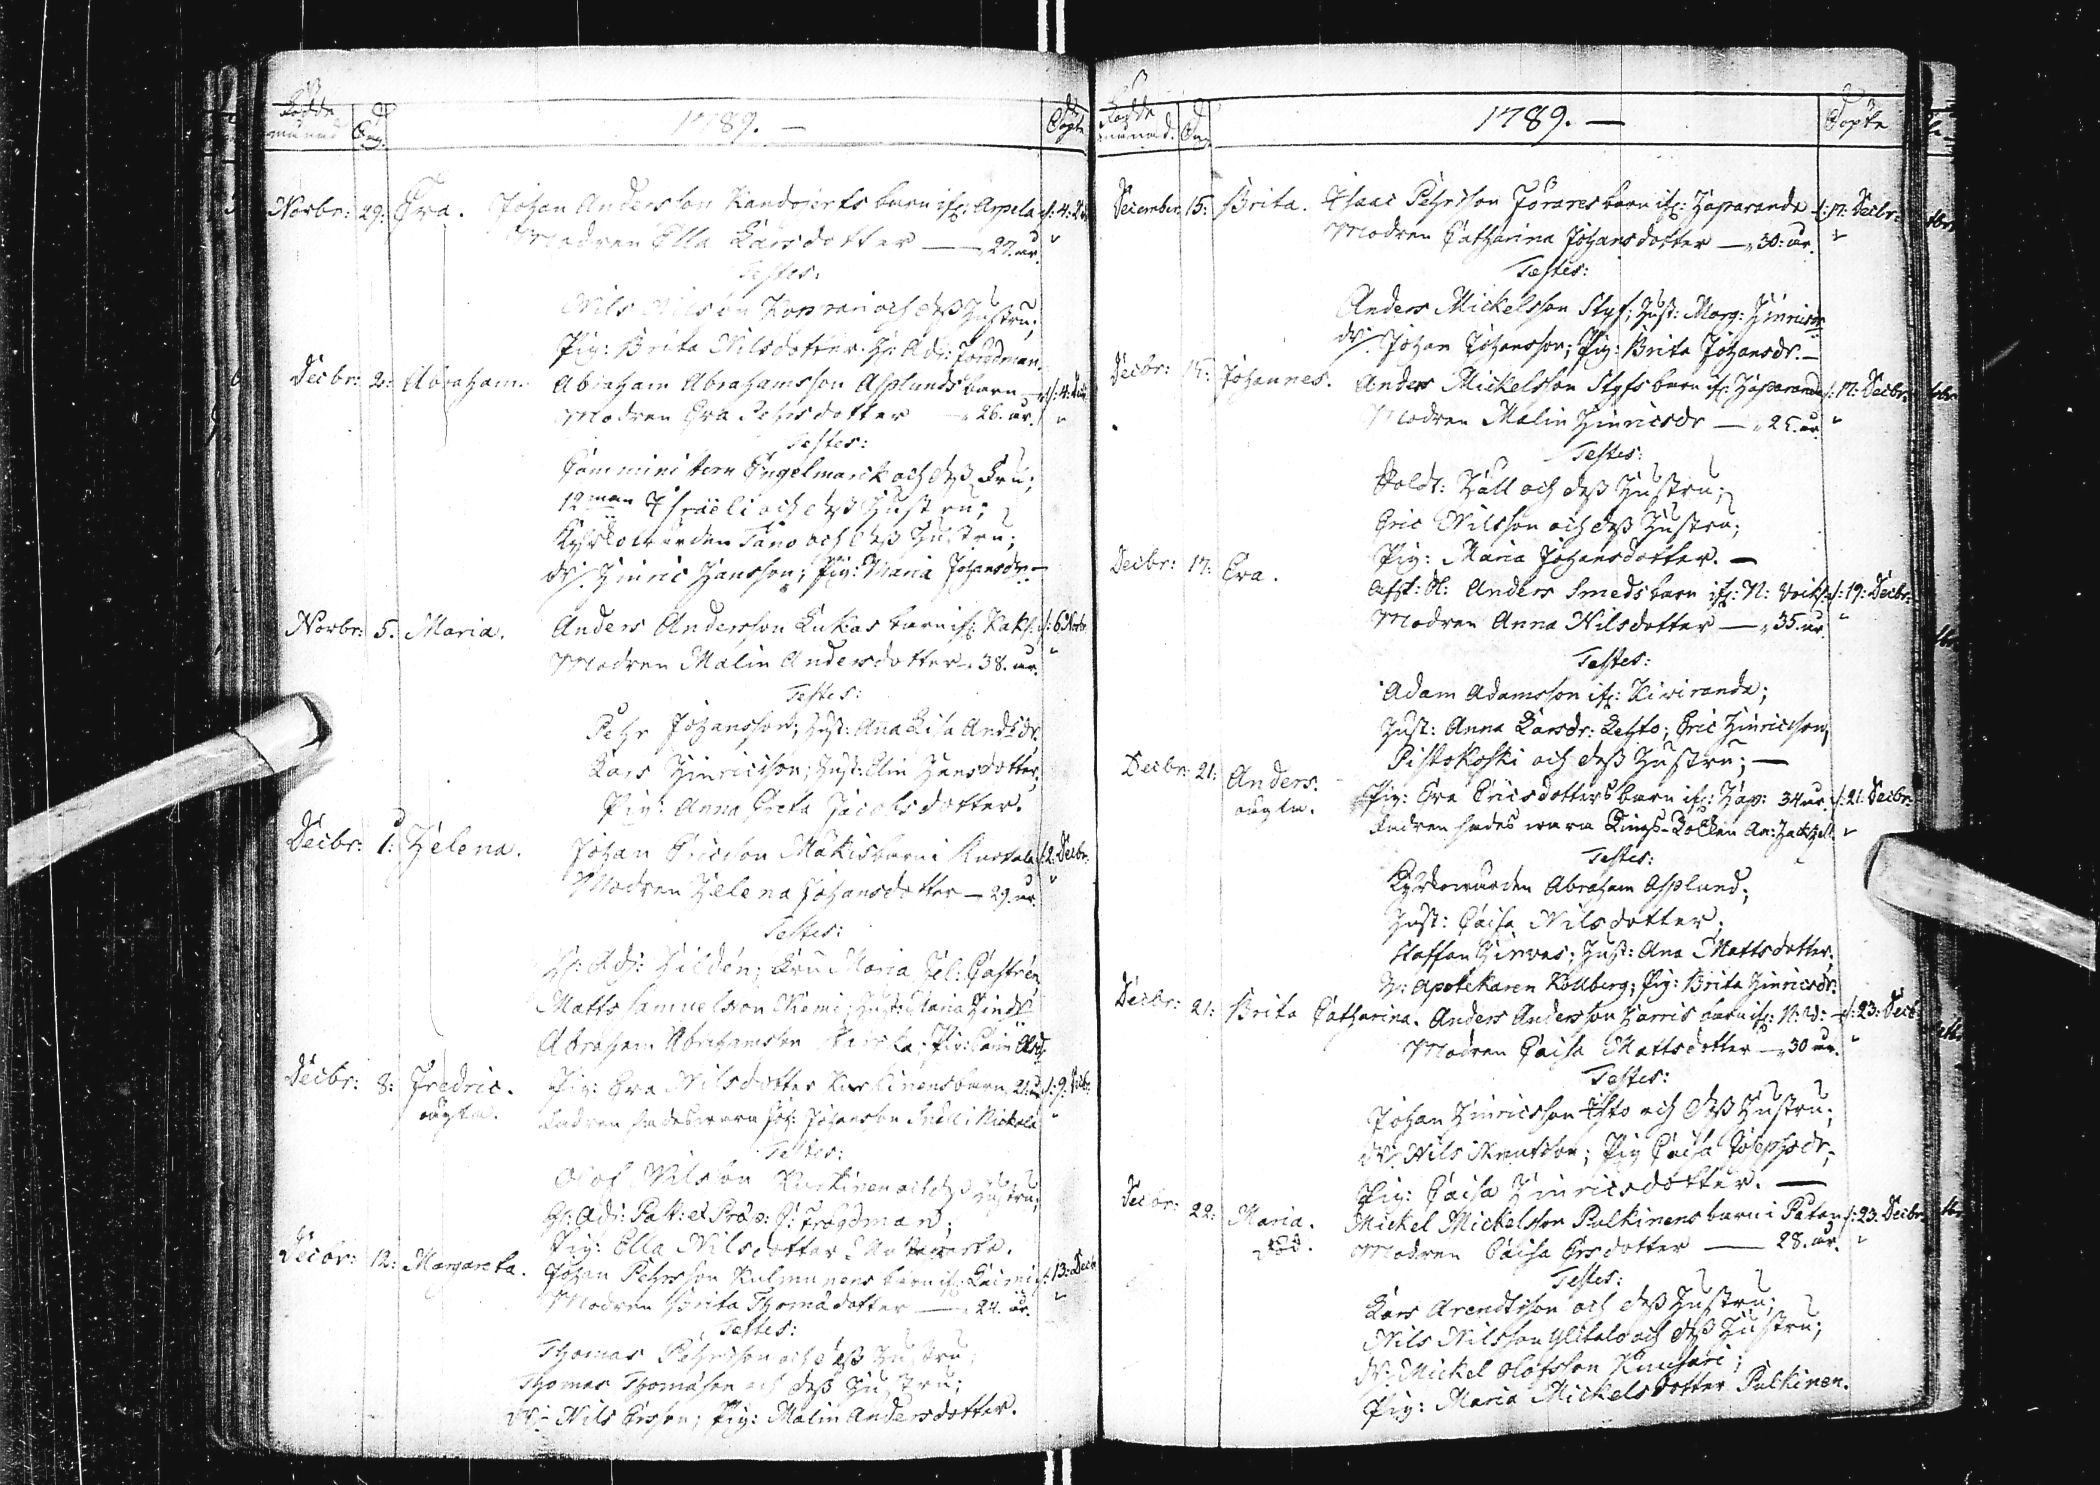 Födde
månad Dag. 1789. — Döpte
Novbr: 29: Eva. Johan Andersson barn ifr: Arpela /: 4:
Modren Ella Larsdotter — 27. år.
Testes:
Nils Nilsson och deß Hustru;
Pig: Brita Nilsdotter. Hr Adj:
Decbr: 2: Abraham. Abraham Abrahamsson Asplunds barn /: 4:
Modren Eva Pehrsdotter — 26. år.
Testes:
Comministern Engelmarck och deß Fru;
12man Israeli och deß Hustru;
Kyrkowärden Tano och deß Hustru;
Dr. Hinric Hansson; Pig: Maria Johansdr. —
Novbr: 5: Maria. Anders Andersson Lukas barn ifr: /: 6 Novbr
Modren Malin Andersdotter. 38. år.
Testes:
Pehr Johansson; Hust: Ana Lisa Andsdr
Lars Hinricsson; Hust: Elin Hansdotter;
Pig: Anna Greta Jacobsdotter.
Decbr: 1: Helena. Johan Ericsson Mäkis barn i /: 2: Decbr:
Modren Helena Johansdotter — 29. år.
Testes:
Hr: Adj: Hildén; Fru Maria Hel: Castrén
Matts Samuelsson Niemi; Hust: Maria
Abraham Abrahamsson ; Pig: Olsdr
Decbr: 8: Fredric. Pig: Eva Nilsdotter Kurkinens barn, 21: /: 9: Decbr:
oägta. Fadren Joh: Johansson i Nickala
Testes:
Olof Nilsson Kurkinen och deß Hustru;
Hr: Adj: Past: et Præp:
Pig: Ella Nilsdotter
Decbr: 12: Margareta. Johan Pehrsson Kulmunens barn ifr: /: 13: Decbr
Modren Brita Thomædotter — 24. år.
Testes:
Thomas Pehrsson och deß Hustru;
Thomas Thomæson och deß Hustru;
Dr. Nils Ersson; Pig: Malin Andersdotter.
Födde
månad. Dag. 1789. — Döpte
December. 15: Brita. Isaac Pehrsson barn ifr: Haparanda /: 17: Decbr:
Modren Catharina Johansdotter — 30: år.
Testes:
Anders Mickelsson Styf; Hust: Marg: Hinricsdr
Dr. Johan Johansson; Pig: Brita Johansdr. —
Decbr: 15: Johannes. Anders Mickelsson Styfs barn ifr: Haparanda /: 17: Decbr:
Modren Malin Hinricsdr — 25. år.
Testes:
Soldt: Häll och deß Hustru;
Eric Nilsson och deß Hustru;
Pig: Maria Johansdotter. —
Decbr: 17: Eva. Anders Smeds barn ifr: N: /: 19: Decbr:
Modren Anna Nilsdotter — 35. år.
Testes:
Adam Adamsson ifr: Kiviranda;
Hust: Anna Larsdr: Lehto; Eric Hinricsson;
Pistokoski och deß Hustru; —
Decbr: 21: Anders. Pig: Eva Ericsdotters barn ifr: Hap: 34 år /: 21: Decbr:
oägta. Fadren
Testes:
Kyrkowärden Abraham Asplund;
Hust: Caisa Nilsdotter;
Staffan Hirvas; Hust: Ana Mattsdotter;
Hr: Apotekaren Kollberg; Pig: Brita Hinricsdr:
Decbr: 21: Brita Catharina. Anders Andersson Harris barn ifr: /: 23: Decbr
Modren Caisa Mattsdotter — 30 år.
Testes:
Johan Hinricsson och deß Hustru;
Dr. Nils Knutsson; Pig Caisa Josephsdr;
Pig: Caisa Hinricsdotter. —
Decbr: 22: Maria. Mickel Mickelsson Pulkinens barn i /: 23. Decbr:
Modren Caisa Ersdotter — 28. år.
Testes:
Lars Arendtsson och deß Hustru;
Nils Nilsson Ylitalo och deß Hustru;
Dr. Mickel Olofsson
Pig: Maria Mickelsdotter Pulkinen.